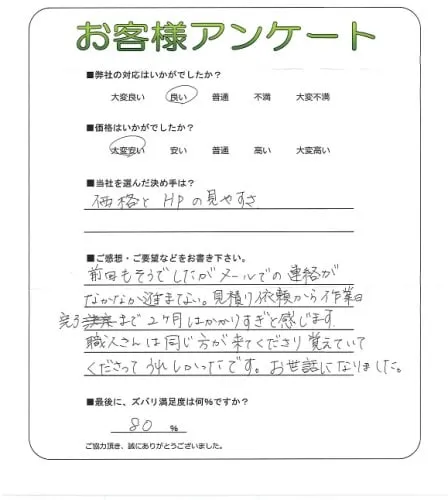 お客様アンケート
■弊社の対応はいかがでしたか？
大変良い 良い 普通 不満 大変不満
■価格はいかがでしたか？
大変安い 安い 普通 高い 大変高い
■当社を選んだ決め手は？
価格とHPの見やすさ
■ご感想・ご要望などをお書き下さい。
前回もそうでしたがメールでの連絡が
なかなか進まない。見積り依頼から作業日
完了まで2ヶ月はかかりすぎと感じます
職人さんは同じ方が来てくださり覚えていて
くださってうれしかったです。お世話になりました。
■最後に、ズバリ満足度は何%ですか？
80 %
ご協力頂き、誠にありがとうございました。